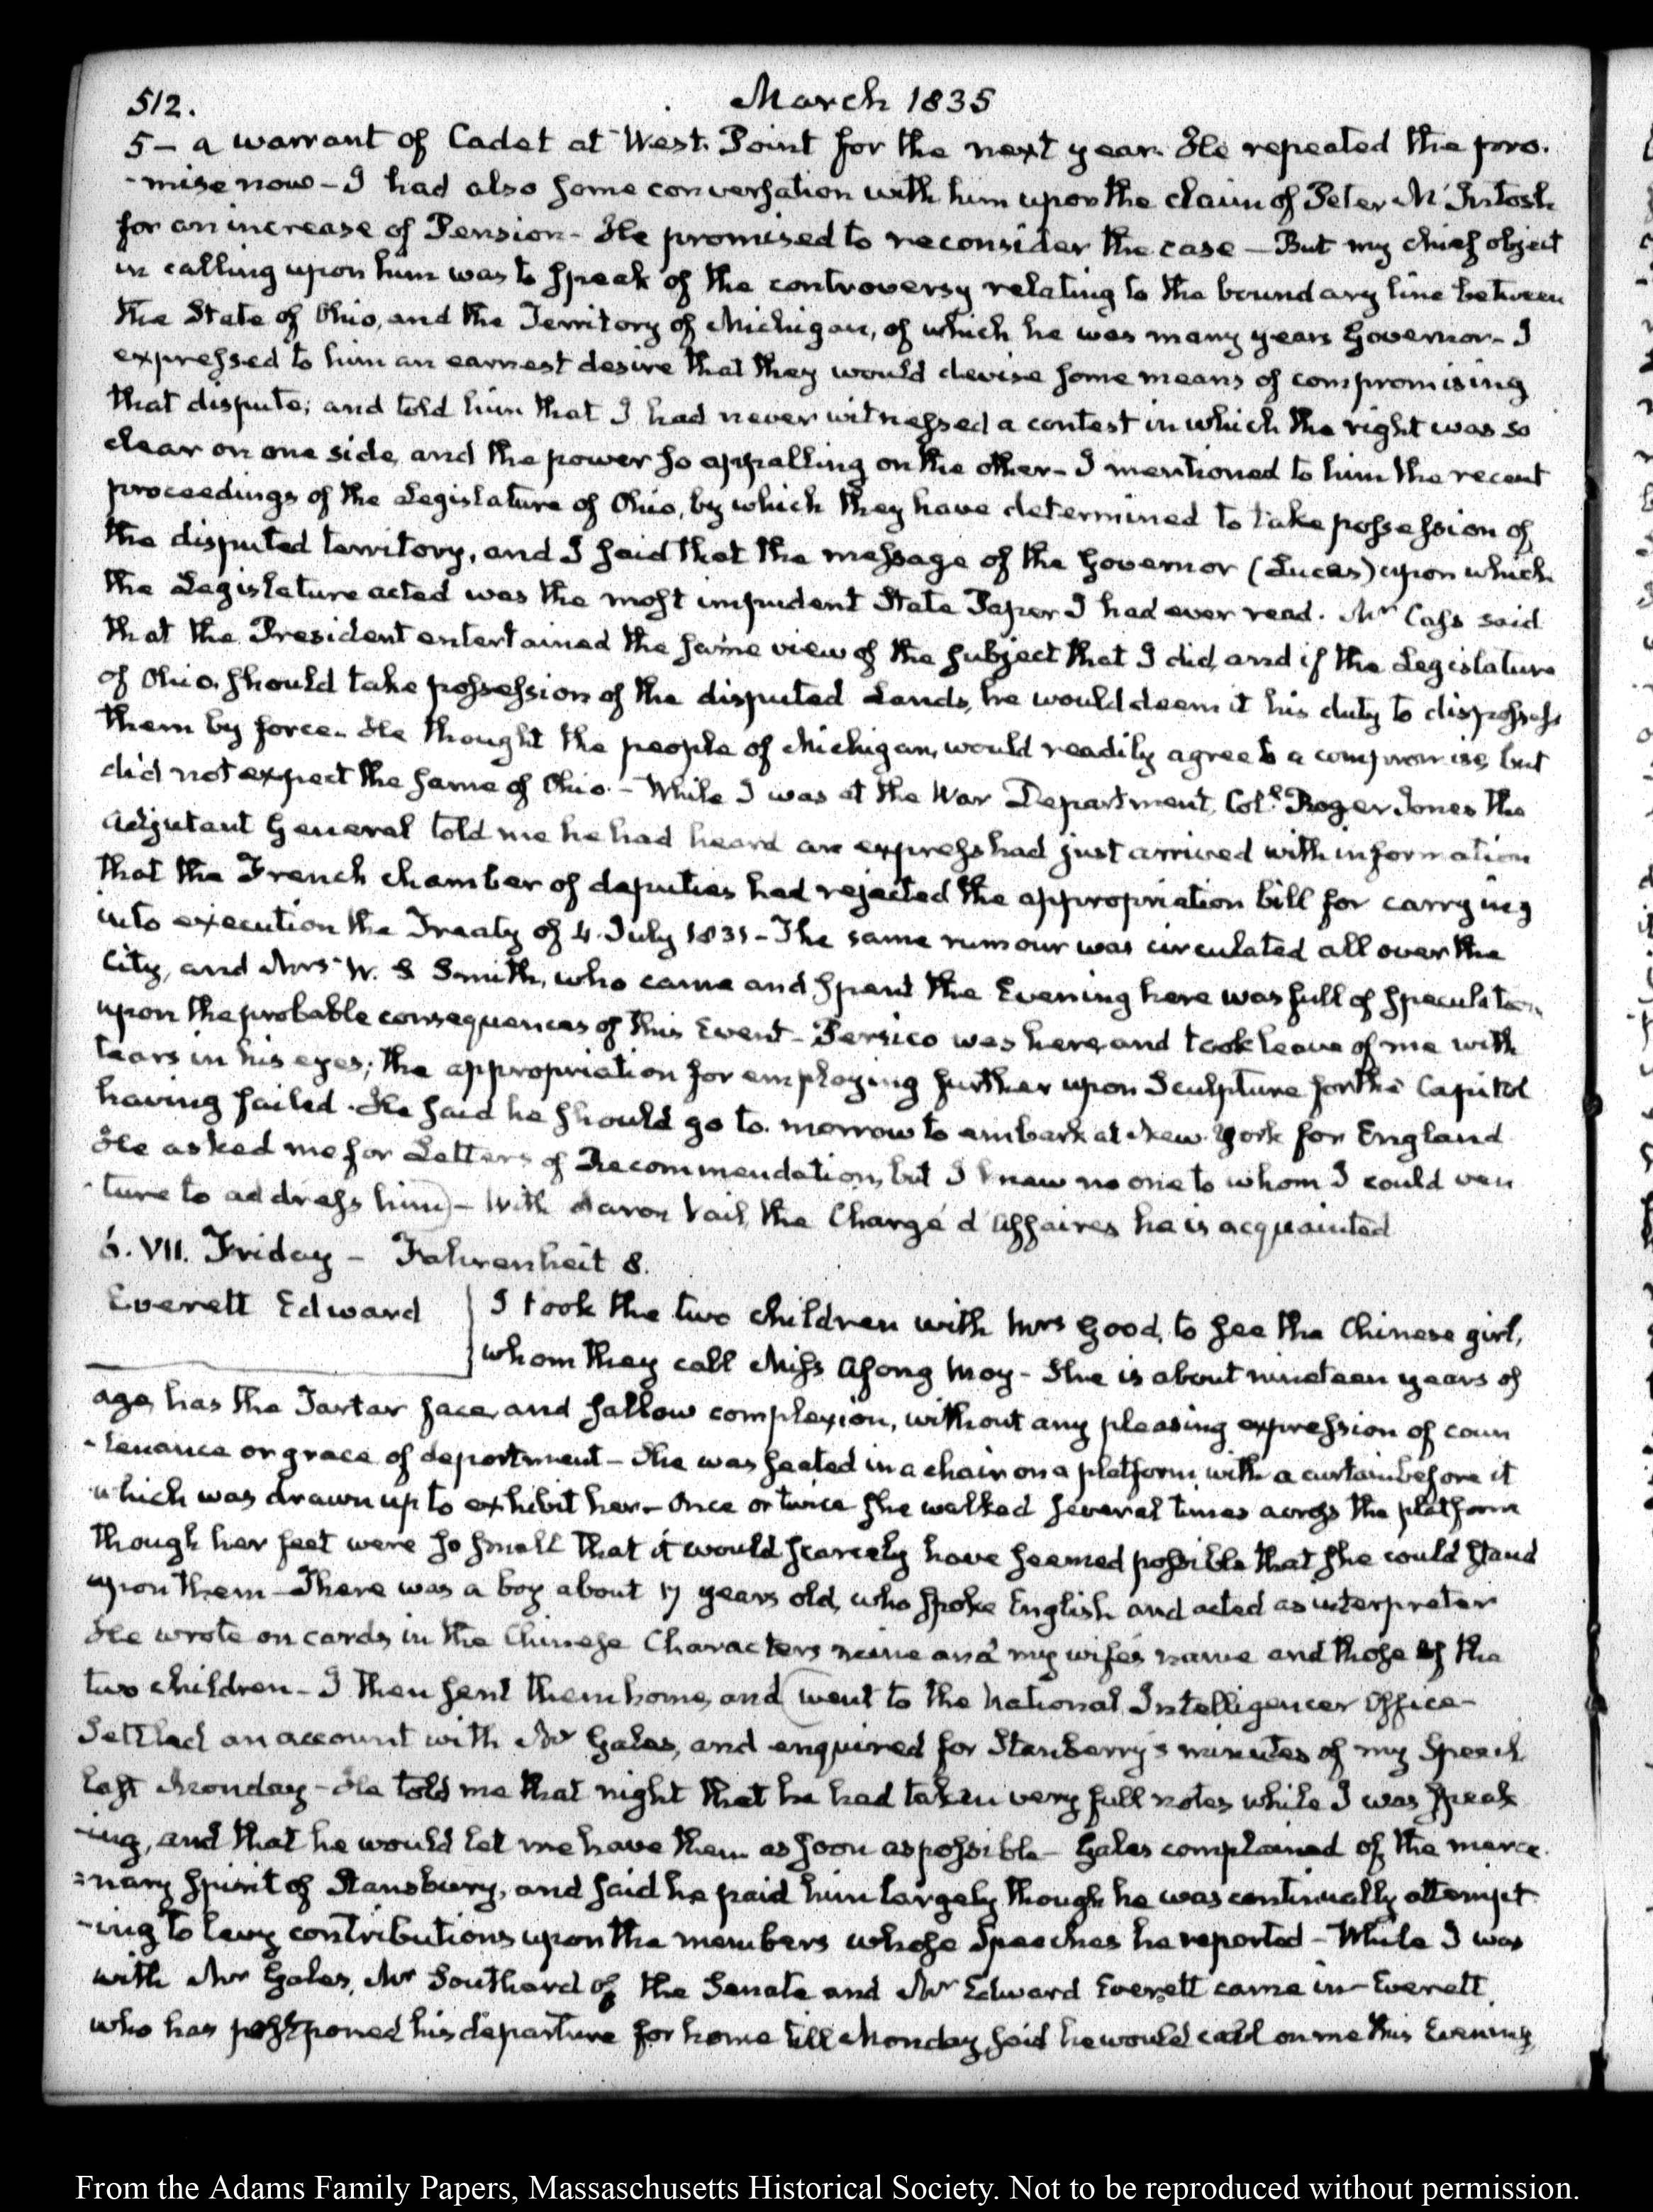 512.
March 1835
5 – a warrant of Cadet at West-Point for the next year. He repeated the pro-
-mise now – I had also some conversation with him upon the claim of Peter McIntosh
for an increase of Pension – He promised to reconsider the case – But my chief object
in calling upon him was to speak of the controversy relating to the boundary line between
the State of Ohio, and the Territory of Michigan, of which he was many years Governor – I
expressed to him an earnest desire that they would devise some means of compromising
that dispute; and told him that I had never witnessed a contest in which the right was so
clear on one side, and the power so appalling on the other – I mentioned to him the recent
proceedings of the Legislature of Ohio, by which they have determined to take possession of
the disputed territory, and I said that the message of the Governor (Lucas) upon which
the Legislature acted was the most impudent State Paper I had ever read. Mr Cass said
that the President entertained the same view of the subject that I did, and if the Legislature
of Ohio, should take possession of the disputed Lands, he would deem it his duty to dispossess
them by force. He thought the people of Michigan, would readily agree to a compromise, but
did not expect the same of Ohio. – While I was at the War Department, Coll Roger Jones the
Adjutant General told me he had heard an express had just arrived with information
that the French chamber of deputies had rejected the appropriation bill for carrying
into execution the Treaty of 4. July 1831 – The same rumour was circulated all over the
City, and Mrs W. S. Smith, who came and spent the Evening here was full of speculation
upon the probable consequences of this Event – Persico was here, and took leave of me with
tears in his eyes; the appropriation for employing further upon Sculpture for the Capitol
having failed. He said he should go to-morrow to embark at New-York for England
He asked me for Letters of Recommendation, but I knew no one to whom I could ven
-ture to address him) – With Aaron Vail, the Chargé d'Affaires he is acquainted
6. VII. Friday – Fahrenheit 8.
Everett Edward
I took the two children with Mrs Good, to see the Chinese girl,
whom they call Miss Afong Moy – She is about nineteen years of
age, has the Tartar face, and sallow complexion, without any pleasing expression of coun
-tenance or grace of deportment – She was seated in a chair on a platform, with a curtain before it
which was drawn up to exhibit her – Once or twice she walked several times across the platform
though her feet were so small that it would scarcely have seemed possible that she could stand
upon them – There was a boy about 17 years old, who spoke English and acted as interpreter
He wrote on cards, in the Chinese Characters mine and my wife's name and those of the
two children – I then sent them home, and (went to the National Intelligencer Office –
Settled an account with Mr Gales, and enquired for Stanberry's minutes of my Speech
last Monday – He told me that night that he had taken very full notes while I was speak
-ing, and that he would let me have them as soon as possible – Gales complained of the merce-
=nary spirit of Stansbury, and said he paid him largely though he was continually attempt
-ing to levy contributions upon the members whose Speeches he reported – While I was
with Mr Gales, Mr Southard of the Senate and Mr Edward Everett came in – Everett
who has postponed his departure for home till Monday, said he would call on me this Evening
From the Adams Family Papers, Massachusetts Historical Society. Not to be reproduced without permission.